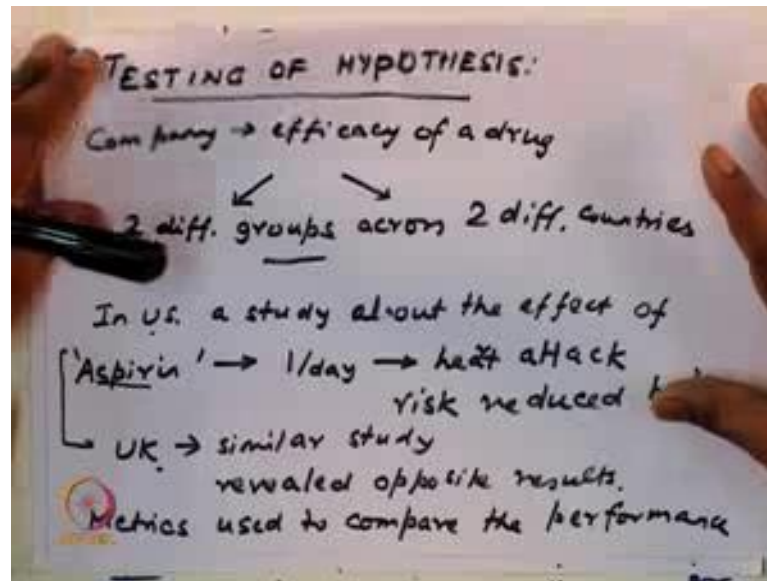 TESTING OF HYPOTHESIS:
Company → efficacy of a drug
2 diff. groups across 2 diff. countries
In US. a study about the effect of
'Aspirin' → 1/day → heart attack
risk reduced
UK → similar study
revealed opposite results.
Metrics used to compare the performance